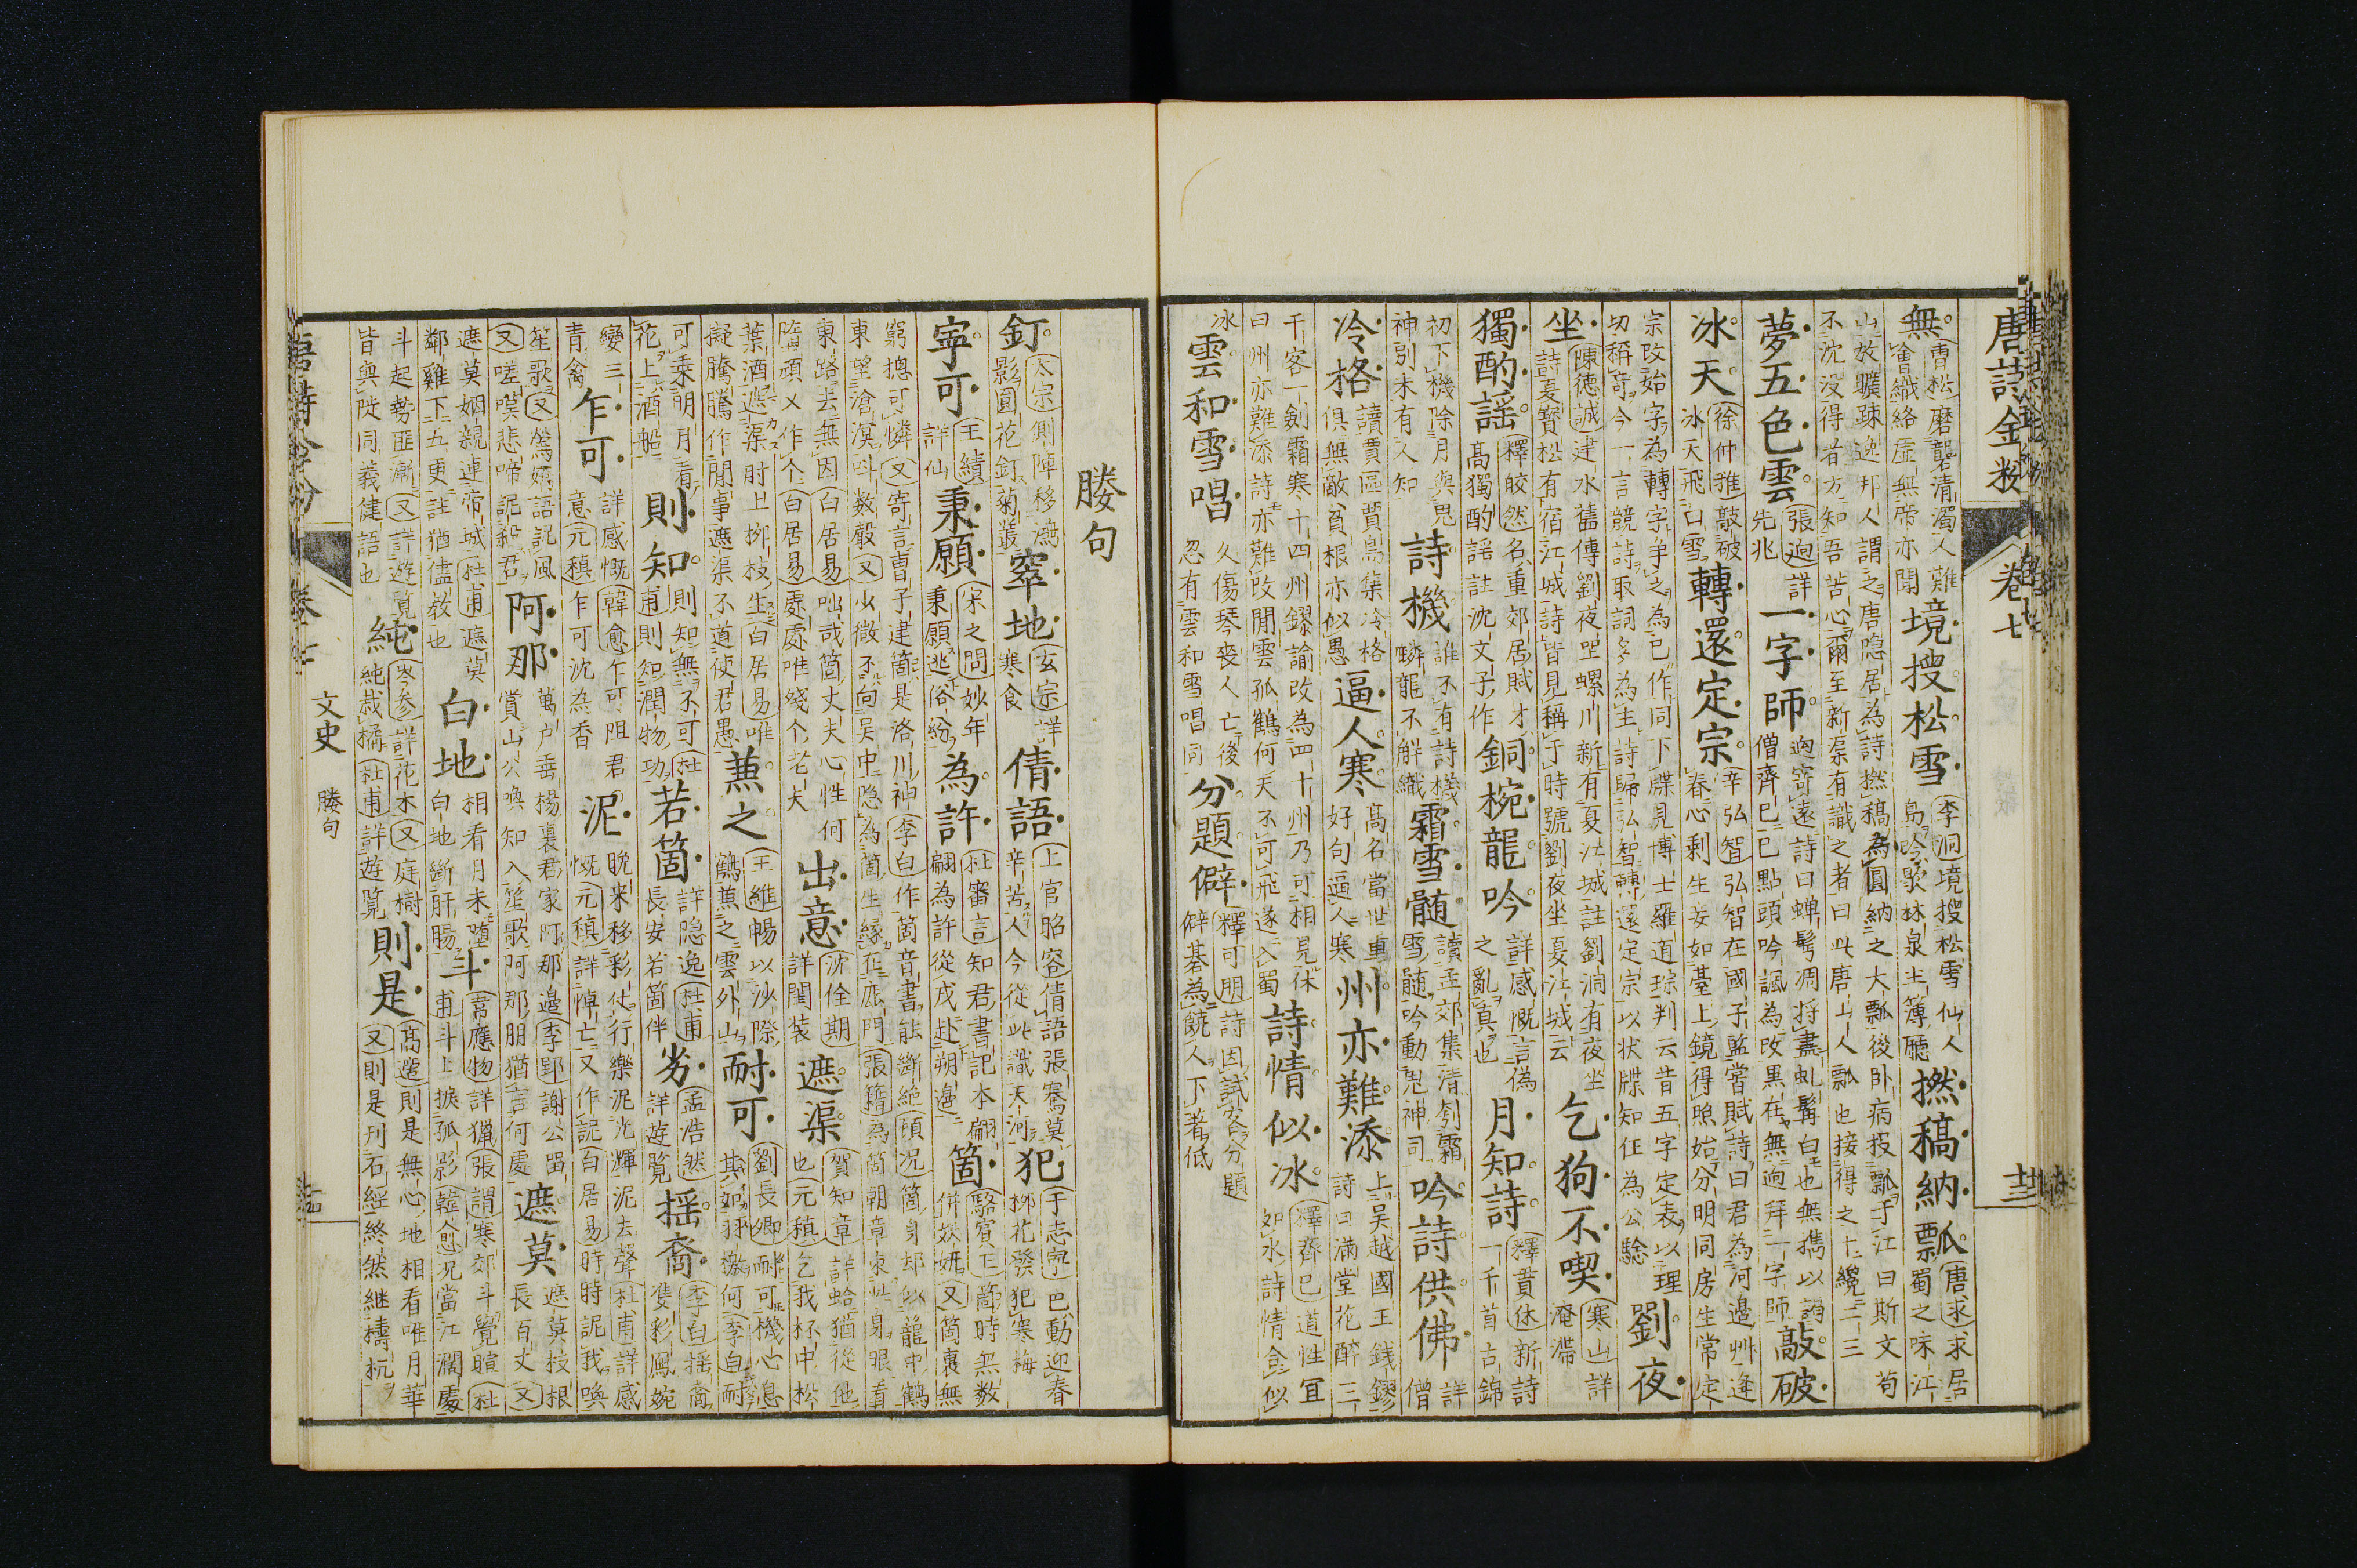 唐詩金粉 卷七 十三
無 曹松 磨礱清濁人難會織絡虛無帝亦聞 境搜松雪 李洞 境搜松雪仙人島吟歇林泉主簿廳 撚稿納瓢 唐求 求居蜀之味江
山放曠踈逸邦人謂之唐隐居為詩撚稿為圓納之大瓢後卧病投瓢于江曰斯文苟不沈没得者方知吾苦心爾至新渠有識之者曰此唐山人瓢也接得之十纔二三
夢五色雲 張迥 詳先兆 一字師 迥寄遠詩曰蝉鬂凋将盡虬髯白也無携以謁僧齊巳巳點頭吟諷為改黒在無迥拜一字師 敲破
冰天 徐仲雅 敲破冰天飛口雪 轉還定宗 辛弘智 弘智在國子監嘗賦詩曰君為河邊艸逢春心剩生妾如臺上鏡得照始分明同房生常定
宗改始字為轉字争之為巳作同下牒見博士羅道琮判云昔五字定表以理切稱竒今一言競詩取詞多為主詩歸弘智轉還定宗以状牒知任為公驗 劉夜
坐 陳德誠 建水舊傳劉夜坐螺川新有夏江城註劉洞有夜坐詩夏寶松有宿江城詩皆見稱于時號劉夜坐夏江城云 乞狗不喫 寒山 詳淹滯
獨酌謡 釋皎然 名重郊居賦才高獨酌謡註沈文子作 銅椀龍吟 詳感慨言偽之亂真也 月知詩 釋貫休 新詩一千首古錦
初下機除月與鬼神別未有人知 詩機 誰不有詩機驎龍不解織 霜雪髄 讀孟郊集清刳霜雪髄吟動鬼神司 吟詩供佛 詳僧
冷格 讀賈區賈島集冷格俱無敵貧根亦似愚 逼人寒 髙名當世重好句逼人寒 州亦難添 上吴越國王錢鏐詩曰滿堂花醉三
千客一劍霜寒十四州鏐諭改為四十州乃可相見休曰州亦難添詩亦難改閒雲孤鶴何天不可飛遂入蜀 詩情似冰 釋齊巳 道性冝如水詩情合似
冰 雲和雪唱 久傷琴䘮人亡後忽有雲和雪唱同 分題僻 釋可朋 詩因試客分題僻碁為饒人下著低
媵句
釘 太宗 側陣移鴻影圓花釘菊叢 窣地 玄宗 詳寒食 倩語 上官昭容 倩語張騫莫辛苦人今從此識天河 犯 于志寧 巴動迎春柳花發犯寒梅
寕可 王績 詳仙 秉願 宋之問 妙年秉願逃俗紛 為許 杜審言 知君書記本翩翩為許從戎赴朔邉 箇 駱賓王 箇時無数併妖妍 又 箇裏無
窮揔可憐 又 寄言曹子建箇是洛川神 李白 作箇音書能断絶 頋况 箇身却似籠中鶴東望滄溟呌数聲 又 少微不向吴中隐為箇生縁在底門 張籍 為箇朝章束此身眼看
東路去無因 白居易 咄哉箇丈夫心性何隳頑又作个 白居易 處處唯殘个老夫 出意 沈佺期 詳閨装 遮渠 賀知章 詳蛤猶從他也 元稹 乞我杯中松
葉酒遮渠肘上栁枝生 白居易 唯擬騰騰作閒事遮渠不道使君愚 蕉之 王維 暢以沙際鶴蕉之雲外山 耐可 劉長卿 耐可機心息其如羽檄何 李白 耐
可乗明月看花上酒船 則知 則知無不可 杜甫 則知潤物功 若箇 詳隐逸 杜甫 長安若箇伴 劣 孟浩然 詳遊覧 揺裔 李白 揺裔雙彩鳳婉
孌三青禽 乍可 詳感慨 韓愈 乍可阻君意 元稹 乍可沈為香 泥 晩来移彩仗行樂泥光輝泥去聲 杜甫 詳感慨 元稹 詳悼亡又作詑 白居易 時時詑我喚
笙歌 又 鶯嬌語詑風 又 嗟嘆悲啼詑殺君 阿那 萬户垂楊裏君家阿那邉 李郢 謝公留賞山公喚知入笙歌阿那朋猶言何處 遮莫 遮莫枝根長百丈 又
遮莫姻親連帝城 杜甫 遮莫鄰雞下五更註猶儘教也 白地 相看月未堕白地断肝腸 斗 韋應物 詳猟 張謂 寒郊斗覺暄 杜甫 斗上捩孤影 韓愈 况當江濶處
斗起勢匪漸 又 詳遊覧皆與陡同義健語也 純 岑參 詳花木 又 庭樹純栽橘 杜甫 詳遊覧 則是 髙適 則是無心地相看唯月華 又 則是刋石經終然継擣杬
唐詩金粉 卷七 文史 媵句 十四